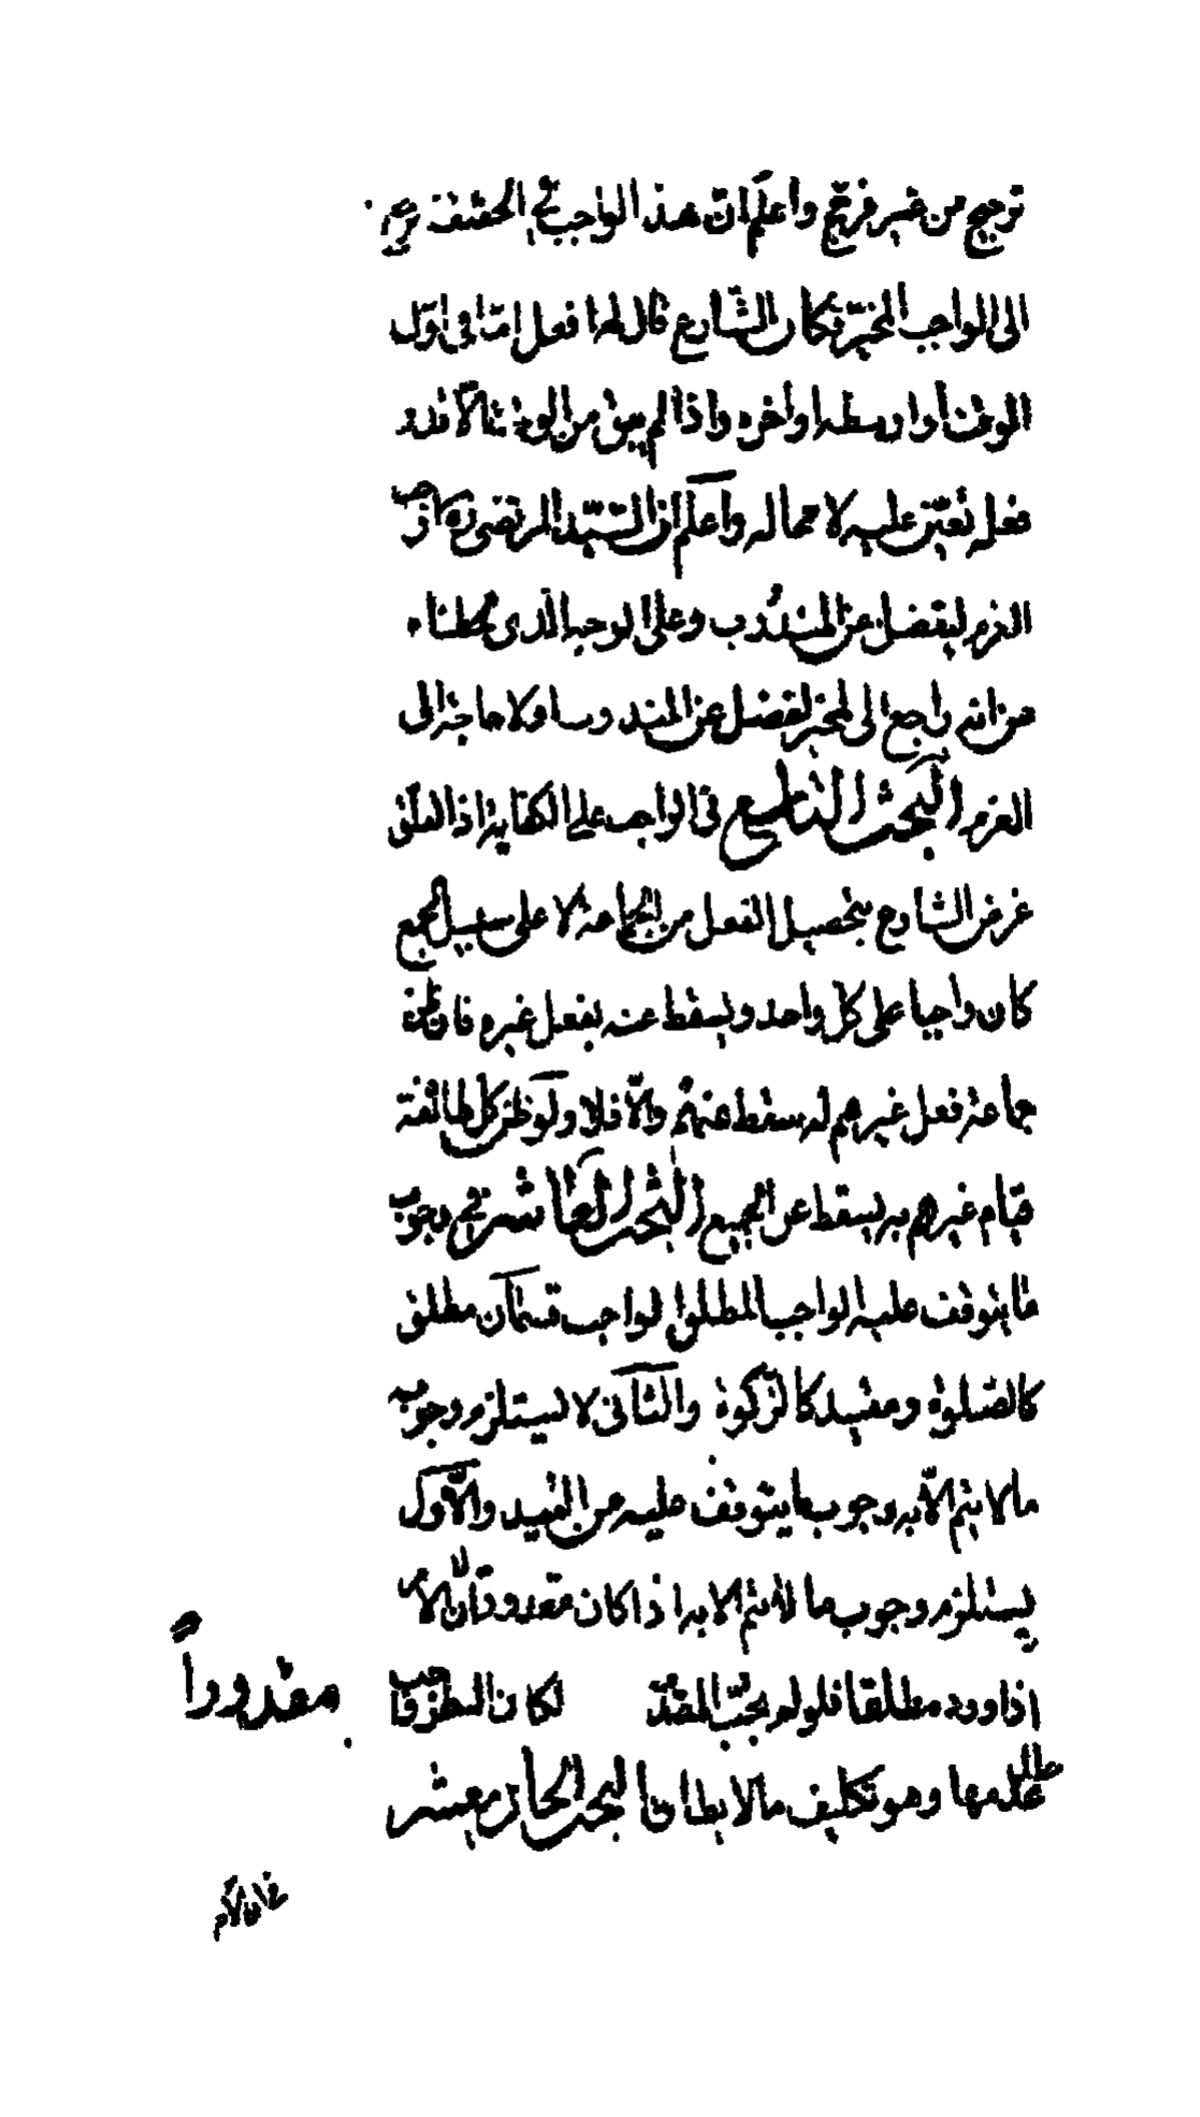 ترجيح من غير مرجح واعلم ان هذا الواجب في الحقيقة يرجع
الى الواجب المخير فكان الشارع قال له افعل امّا في اوّل
الوقت او اوسطه او اخره واذا لم يبق من الوقت الّا قدر
فعله تعيّن عليه لا محاله واعلم ان السّيّد المرتضى ره اوجب
العزم ليفصل عن المندوب وعلى الوجه الذي
من انه راجع الى المخير لفصل عن المندوب ولا حاجة الى
العزم البحث التاسع في الواجب على الكفاية اذا تعلّق
غرض الشارع بتحصيل الفعل من الجماعة لا على سبيل الجمع
كان واجبا على كل واحد ويسقط عنه بفعل غيره فان ظنّ
جماعة فعل غيرهم له سقط عنهم والّا فلا ولو ظن كل طائفة
قيام غيرهم به يسقط عن الجميع البحث العاشر في وجوب
ما يتوقف عليه الواجب المطلق الواجب قسمان مطلق
كالصلوة ومقيد كالزكوة والثانى لا يستلزم وجوبه
ما لا يتم الّا به وجوب ما يتوقف عليه من القيد والاول
يستلزم وجوب ما لا يتم الا به اذا كان مقدورا لان الامر
اذا ورد مطلقا فلو لم يجب المقدّمة لكان المطلق واجب
مقدوراً
حال عدمها وهو تكليف ما لا يطاق البحث الحادي عشر
في ان الامر